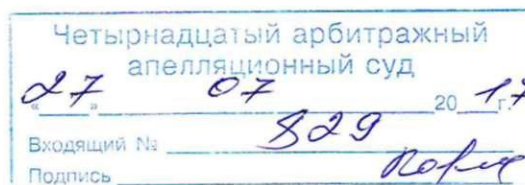 Четырнадцатый арбитражный
апелляционный суд
"27" 07 2017г.
Входящий № 829
Подпись